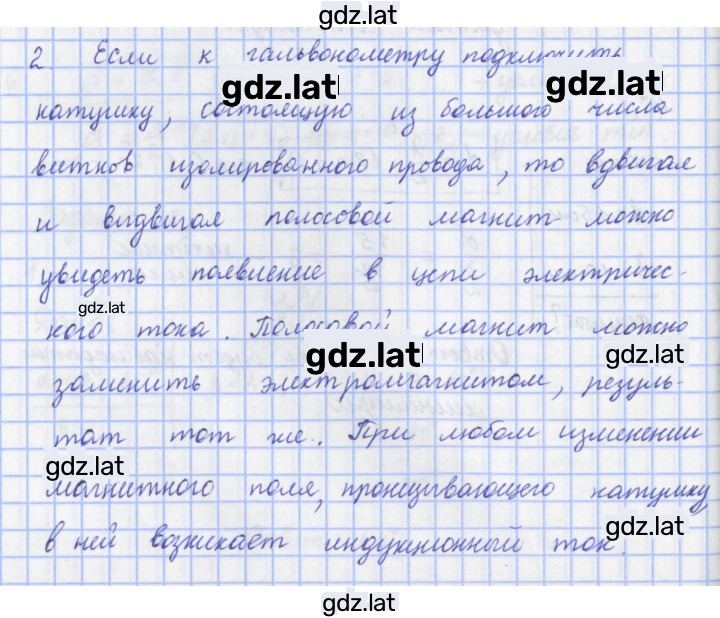 gdz.lat
2. Если к гальвонометру подключить
gdz.lat gdz.lat
катушку, состоящую из большого числа
витков изолированного провода, то вдвигая
и выдвигая полосовой магнит можно
увидеть появление в цепи электричес-
gdz.lat
кого тока. Полосовой магнит можно
gdz.lat gdz.lat
заменить электромагнитом, резуль-
тат тот же. При любом изменении
gdz.lat
магнитного поля, пронизывающего катушку
gdz.lat
в ней возникает индукционный ток.
gdz.lat